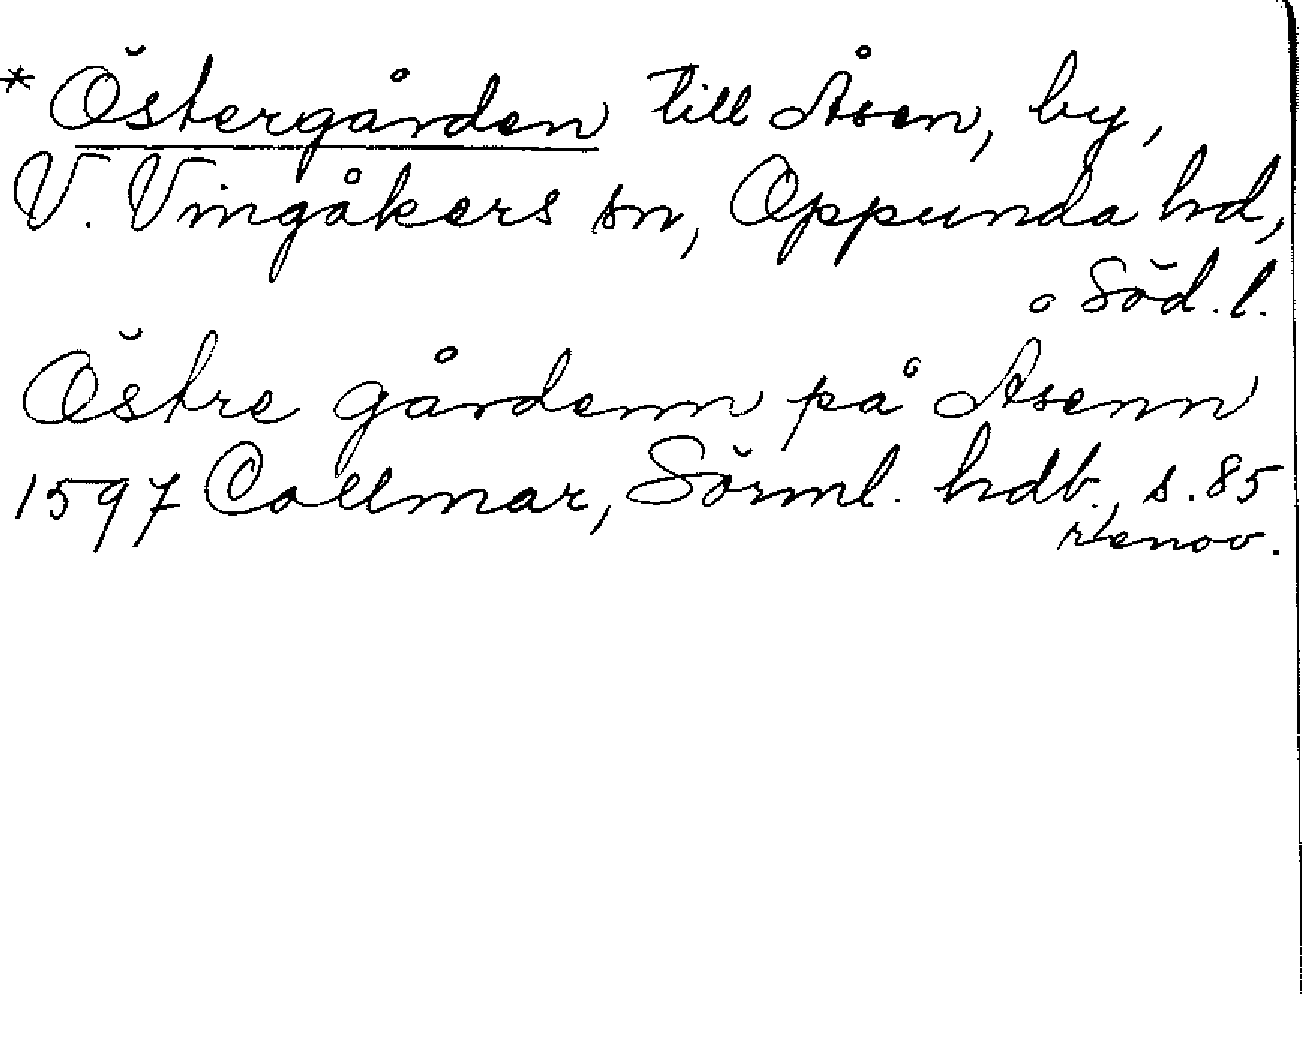 * Östergården till Åsen, by,
V. Vingåkers sn, Oppunda hd,
Söd. l.
Östre gårdenn på Åsenn
1597 Collmar, Sörml. hdb., s. 85
renov.